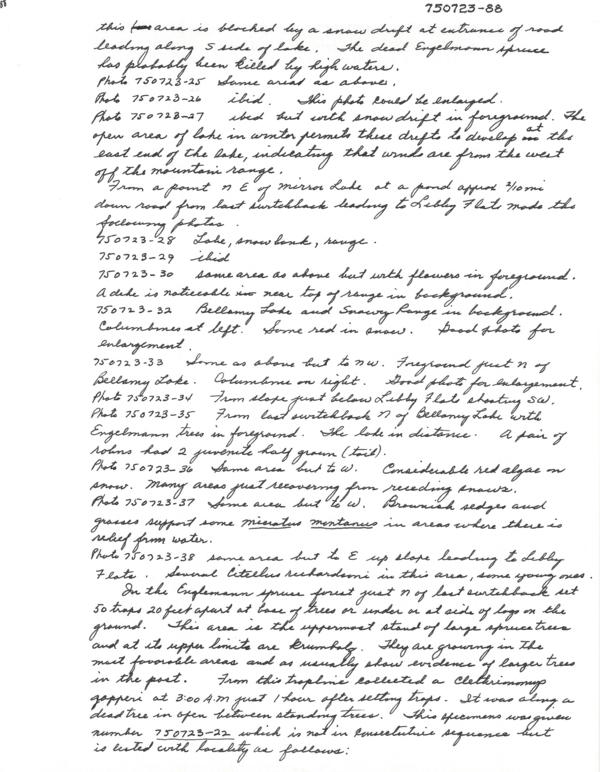 750723-88
this area is blocked by a snow drift at entrance of road
leading along S side of lake. The dead Engelmann spruce
has probably been killed by high waters.
Photo 750723-25 Same area as above.
Photo 750723-26 ibid. This photo could be enlarged.
Photo 750723-27 ibid but with snow drift in foreground. The
open area of lake in winter permits these drifts to develop at the
east end of the lake, indicating that winds are from the west
off the mountain range.
From a point N E of Mirror Lake at a pond approx 2/10 mi
down road from last switchback leading to Libby Flats made the
following photos.
750723-28 Lake, snowbank, range.
750723-29 ibid
750723-30 same area as above but with flowers in foreground.
A dike is noticeable near top of range in background.
750723-32 Bellamy Lake and Snowy Range in background.
Columbines at left. Some red in snow. Good photo for
enlargement.
750723-33 Same as above but to NW. Foreground just N of
Bellamy Lake. Columbine on right. Good photo for enlargement.
Photo 750723-34 From slope just below Libby Flats shooting SW.
Photo 750723-35 From last switchback N of Bellamy Lake with
Engelmann trees in foreground. The lake in distance. A pair of
robins had 2 juvenile half grown (tail).
Photo 750723-36 Same area but to W. Considerable red algae on
snow. Many areas just recovering from receding snows.
Photo 750723-37 Same area but to W. Brownish sedges and
grasses support some Microtus montanus in areas where there is
relief from water.
Photo 750723-38 same area but to E up slope leading to Libby
Flats. Several Citellus richardsoni in this area, some young ones.
In the Englemann spruce forest just N of last switchback set
50 traps 20 feet apart at base of trees or under or at side of logs on the
ground. This area is the uppermost stand of large spruce trees
and at its upper limits are Krumholz. They are growing in the
most favorable areas and as usually show evidence of larger trees
in the past. From this trapline collected a Clethrionomys
gapperi at 3:00 A.M just 1 hour after setting traps. It was along a
dead tree in open between standing trees. This specimens was given
number 750723-22 which is not in consecutive sequence but
is listed with locality as follows: